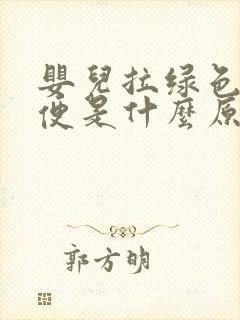 嬰兒拉绿色
便是什麼原
郭方明